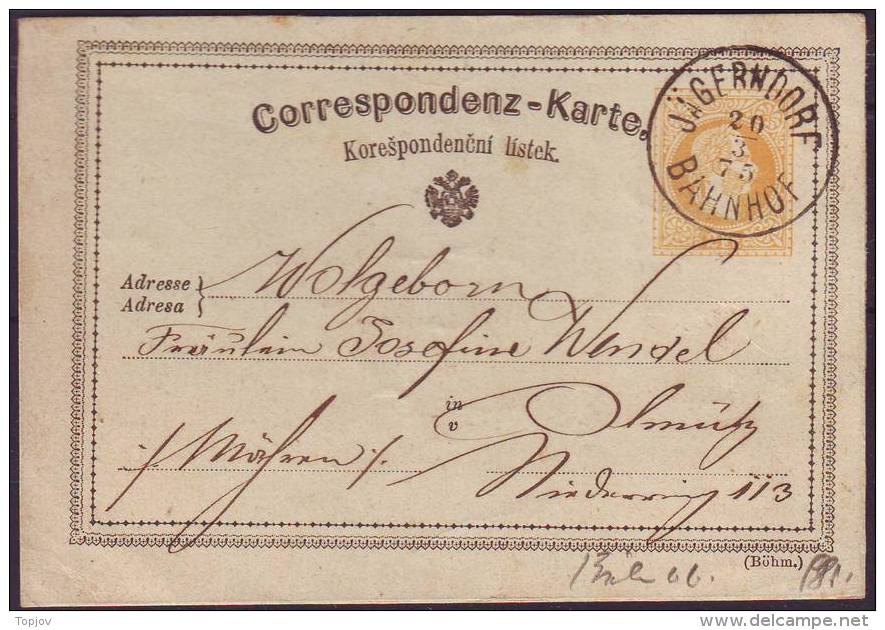 Correspondenz-Karte,
Korešpondenční lístek.
JÄGERNDORF
20
3
75
BAHNHOF
Adresse
Adresa
Wolgeborn
Fräulein Josefine Wendel
in
v
Olmütz
/ Mähren /.
Niederring 113
(Böhm.)
© Topjov
www.delcampe.net